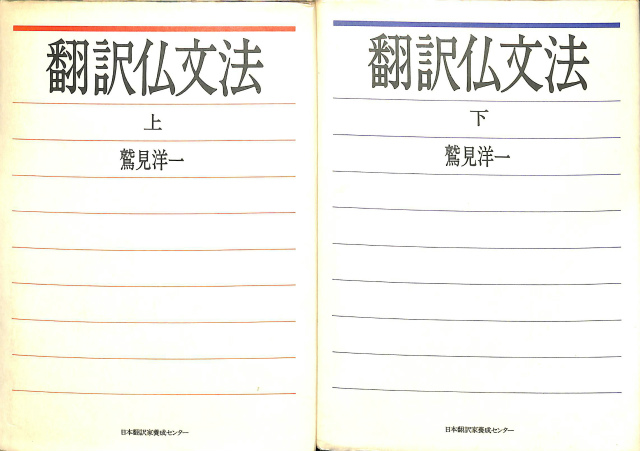 翻訳仏文法
上
鷲見洋一
日本翻訳家養成センター
翻訳仏文法
下
鷲見洋一
日本翻訳家養成センター